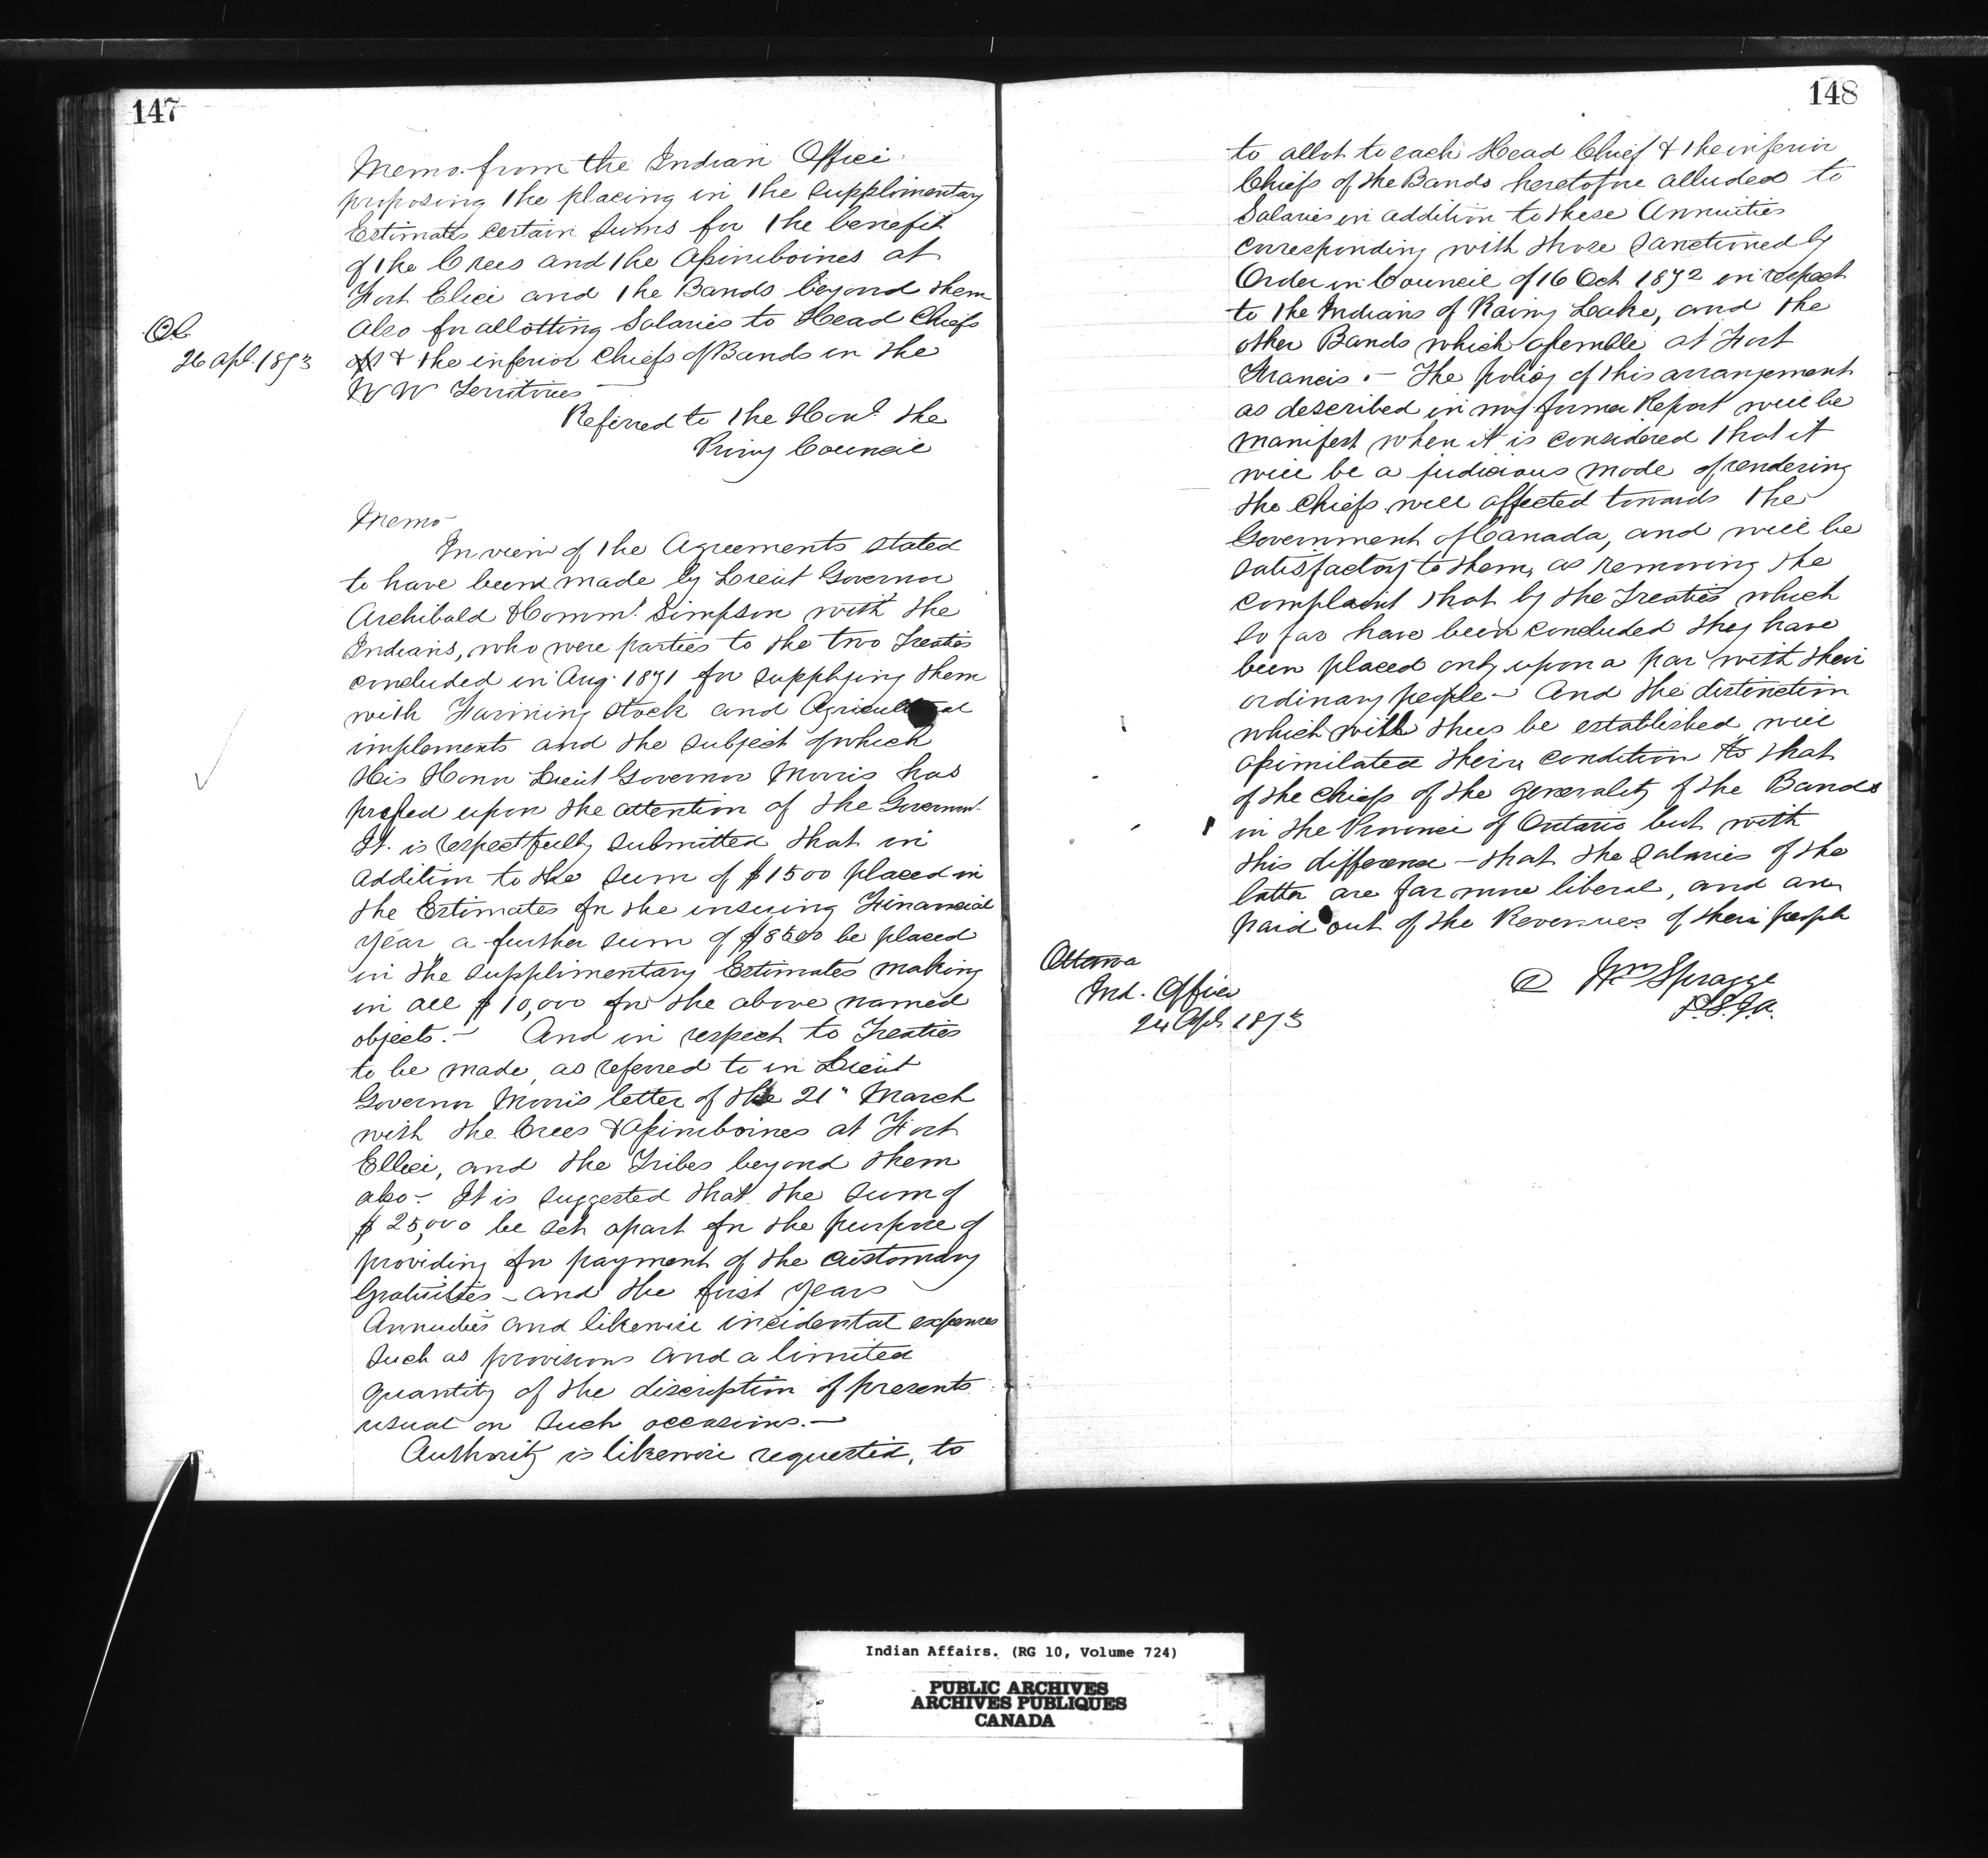 147
Memo. from the Indian Office
proposing the placing in the Supplimentary
Estimates certain Sums for the benefit
of the Crees and the Assiniboines at
Fort Elice and the Bands beyond them
also for allotting Salaries to Head Chiefs
& the inferior Chiefs of Bands in the
N W Territories —
Referred to the Honl. the
Privy Council
OC
26 Apl 1873
Memo
In view of the Agreements stated
to have been made by Lieut Governor
Archibald & Commr. Simpson with the
Indians, who were parties to the two Treaties
concluded in Aug. 1871 for supplying them
with Farming stock and Agricultural
implements and the subject of which
His Honor Lieut Governor Morris has
pressed upon the attention of the Governmt.
It is respectfully submitted that in
addition to the sum of $1500 placed in
the Estimates for the insuing Financial
year, a further sum of $8500 be placed
in the supplimentary Estimates making
in all $10,000 for the above named
objects. — And in respect to Treaties
to be made, as referred to in Lieut
Governor Morris letter of the 21" March
with the Crees & Assiniboines at Fort
Ellice, and the Tribes beyond them
also — It is suggested that the sum of
$25,000 be set apart for the purpose of
providing for payment of the customary
Gratuities — and the first years
Annuities and likewise incidental expenses
such as provisions and a limited
quantity of the discription of presents
usual on such occasions. —
Authority is likewise requested, to
148
to allot to each Head Chief & the inferior
Chiefs of the Bands heretofore alluded to
Salaries in addition to these Annuities
corresponding with those sanctioned by
Order in Council of 16 Oct 1872 in respect
to the Indians of Rainy Lake, and the
other Bands which assemble at Fort
Francis. — The policy of this arrangement
as described in my former Report will be
manifest when it is considered that it
will be a judicious mode of rendering
the Chiefs well affected towards the
Government of Canada, and will be
satisfactory to them, as removing the
complaint that by the Treaties which
so far have been concluded they have
been placed only upon a par with their
ordinary people — And the distinction
which will thus be established will
assimilate their condition to that
of the Chiefs of the generality of the Bands
in the Province of Ontario but with
this difference — that the salaries of the
latter are far more liberal, and are
paid out of the Revenues of their people
Ottawa
Ind. Office
24 Apl 1873
Wm Spragge
D.S.I.A.
Indian Affairs. (RG 10, Volume 724)
PUBLIC ARCHIVES
ARCHIVES PUBLIQUES
CANADA